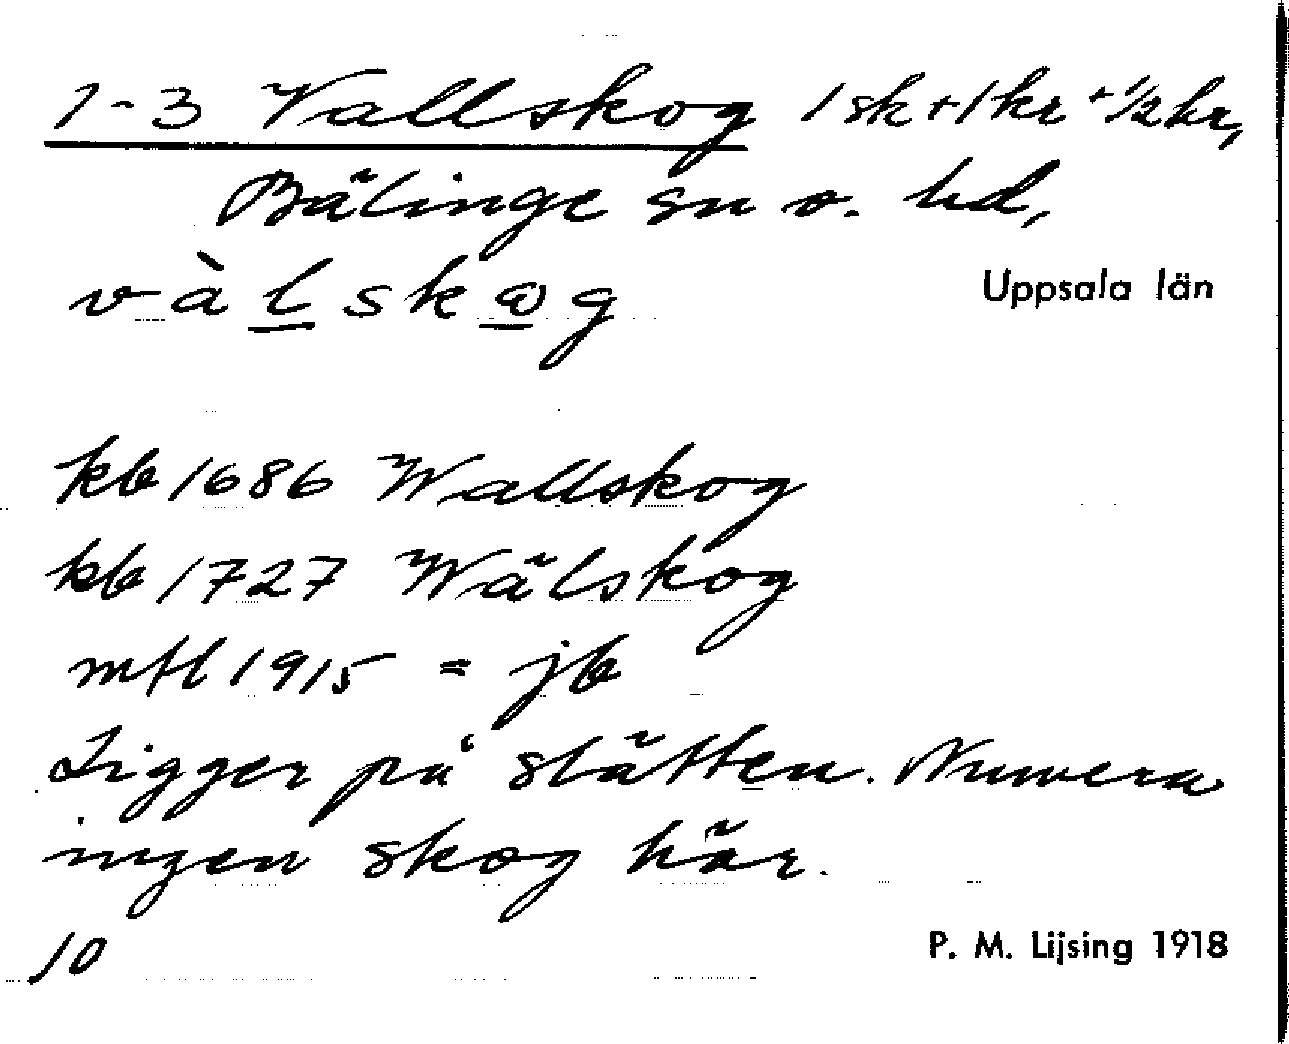 1-3 Vallskog 1 sk + 1 kr + 1/2 kr,
Bälinge sn o. hd,
vàlskωg
Uppsala län
kb 1686 Wallskog
kb 1727 Wälskog
mtl 1915 = jb
Ligger på slätten. Numera
ingen skog här.
10
P. M. Lijsing 1918